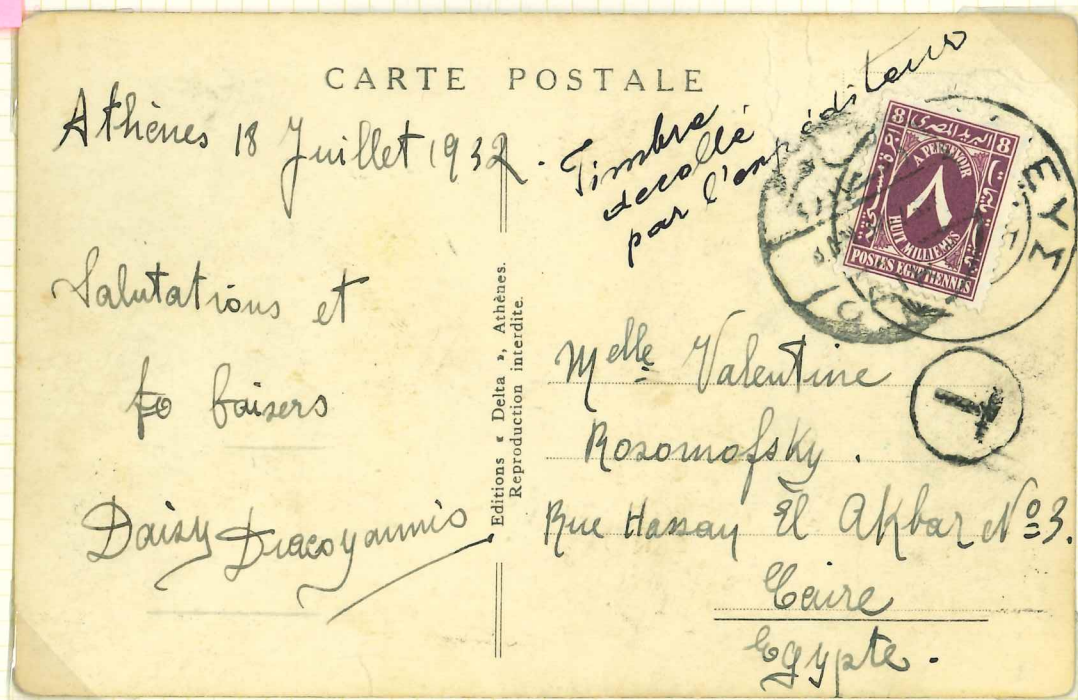 CARTE POSTALE
Athènes 18 Juillet 1932.
Salutations et
baisers
Daisy Dracoyannis
Editions « Delta », Athènes.
Reproduction interdite.
Timbre
decollé
par l'expéditeur
8 البريد المصرى 8
A PERCEVOIR
٨
HUIT MILLIEMES
POSTES EGYPTIENNES
T
Melle Valentine
Rosomofsky.
Rue Hassan El Akbar No 3.
Caire
Egypte.